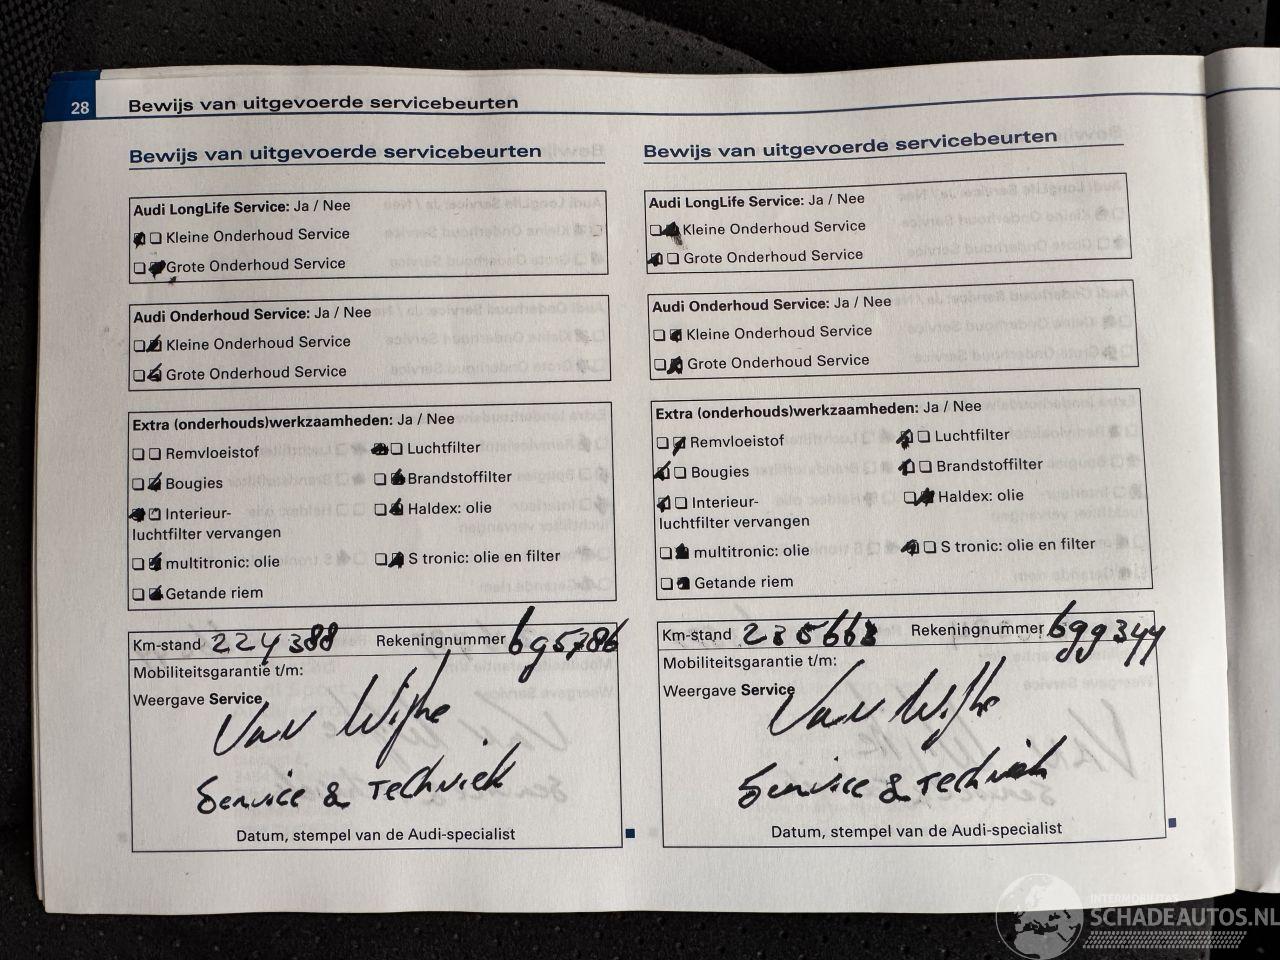 28
Bewijs van uitgevoerde servicebeurten
Bewijs van uitgevoerde servicebeurten
Audi LongLife Service: Ja / Nee
Kleine Onderhoud Service
Grote Onderhoud Service
Audi Onderhoud Service: Ja / Nee
Kleine Onderhoud Service
Grote Onderhoud Service
Extra (onderhouds)werkzaamheden: Ja / Nee
Remvloeistof Luchtfilter
Bougies Brandstoffilter
Interieur- Haldex: olie
luchtfilter vervangen
multitronic: olie S tronic: olie en filter
Getande riem
Km-stand 224388 Rekeningnummer 695786
Mobiliteitsgarantie t/m:
Weergave Service
Van Wijhe
Service & Techniek
Datum, stempel van de Audi-specialist
Bewijs van uitgevoerde servicebeurten
Audi LongLife Service: Ja / Nee
Kleine Onderhoud Service
Grote Onderhoud Service
Audi Onderhoud Service: Ja / Nee
Kleine Onderhoud Service
Grote Onderhoud Service
Extra (onderhouds)werkzaamheden: Ja / Nee
Remvloeistof Luchtfilter
Bougies Brandstoffilter
Interieur- Haldex: olie
luchtfilter vervangen
multitronic: olie S tronic: olie en filter
Getande riem
Km-stand Rekeningnummer 699344
Mobiliteitsgarantie t/m:
Weergave Service
Van Wijhe
Service & Techniek
Datum, stempel van de Audi-specialist
SCHADEAUTOS.NL